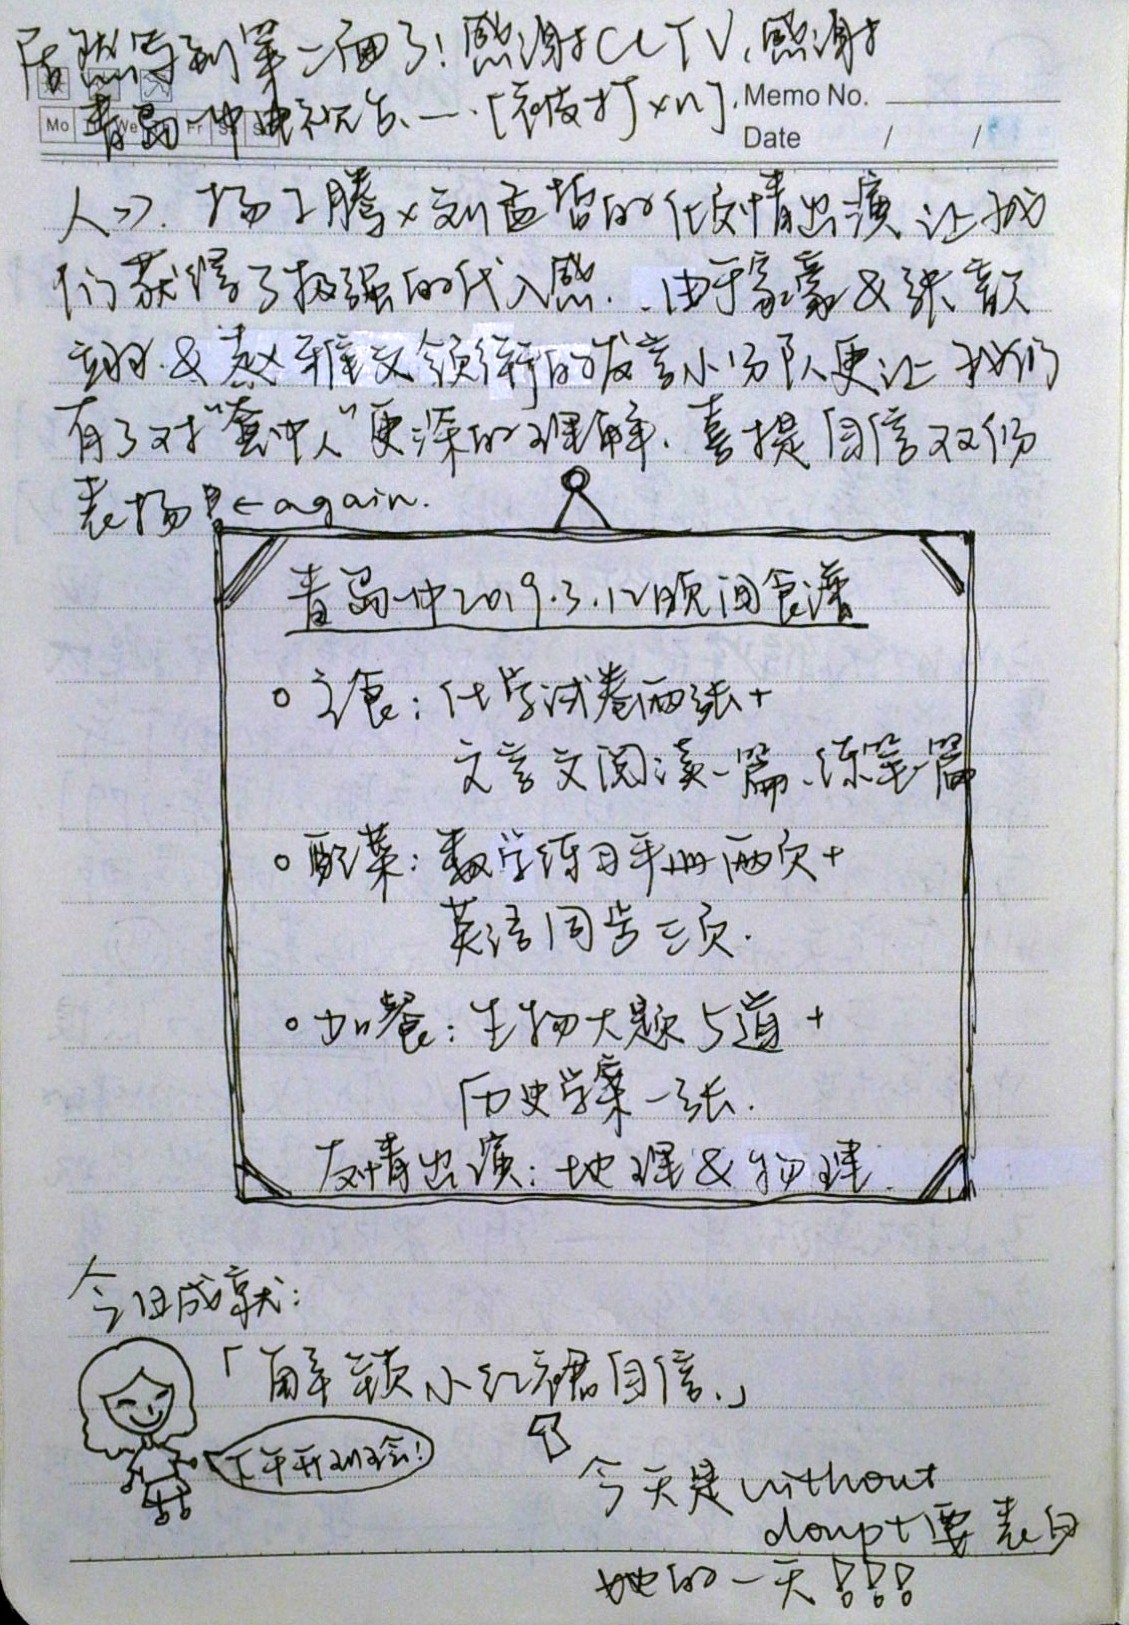 居然写到第二面了!感谢CCTV,感谢
青岛一中电视台、一.[被打×n].
Memo No.
Mo Tu We Fr Sa S
Date / /
人》. 杨子腾×刘孟哲的倾情出演让我
们获得了极强的代入感. 由于家豪&张歆
翊&赵雅文领衔的发言小分队更让我们
有了对"套中人"更深的理解.喜提自信双份
表扬!←again.
青岛一中2019.3.12晚间食谱
○主食:化学试卷两张+
文言文阅读一篇、练笔一篇
○配菜:数学练习手册两页+
英语同步三页.
○加餐:生物大题5道+
历史学案一张.
友情出演:地理&物理.
今日成就:
「解锁小红裙自信.」
下午开班会!
今天是without
doupt要表白
她的一天!!!